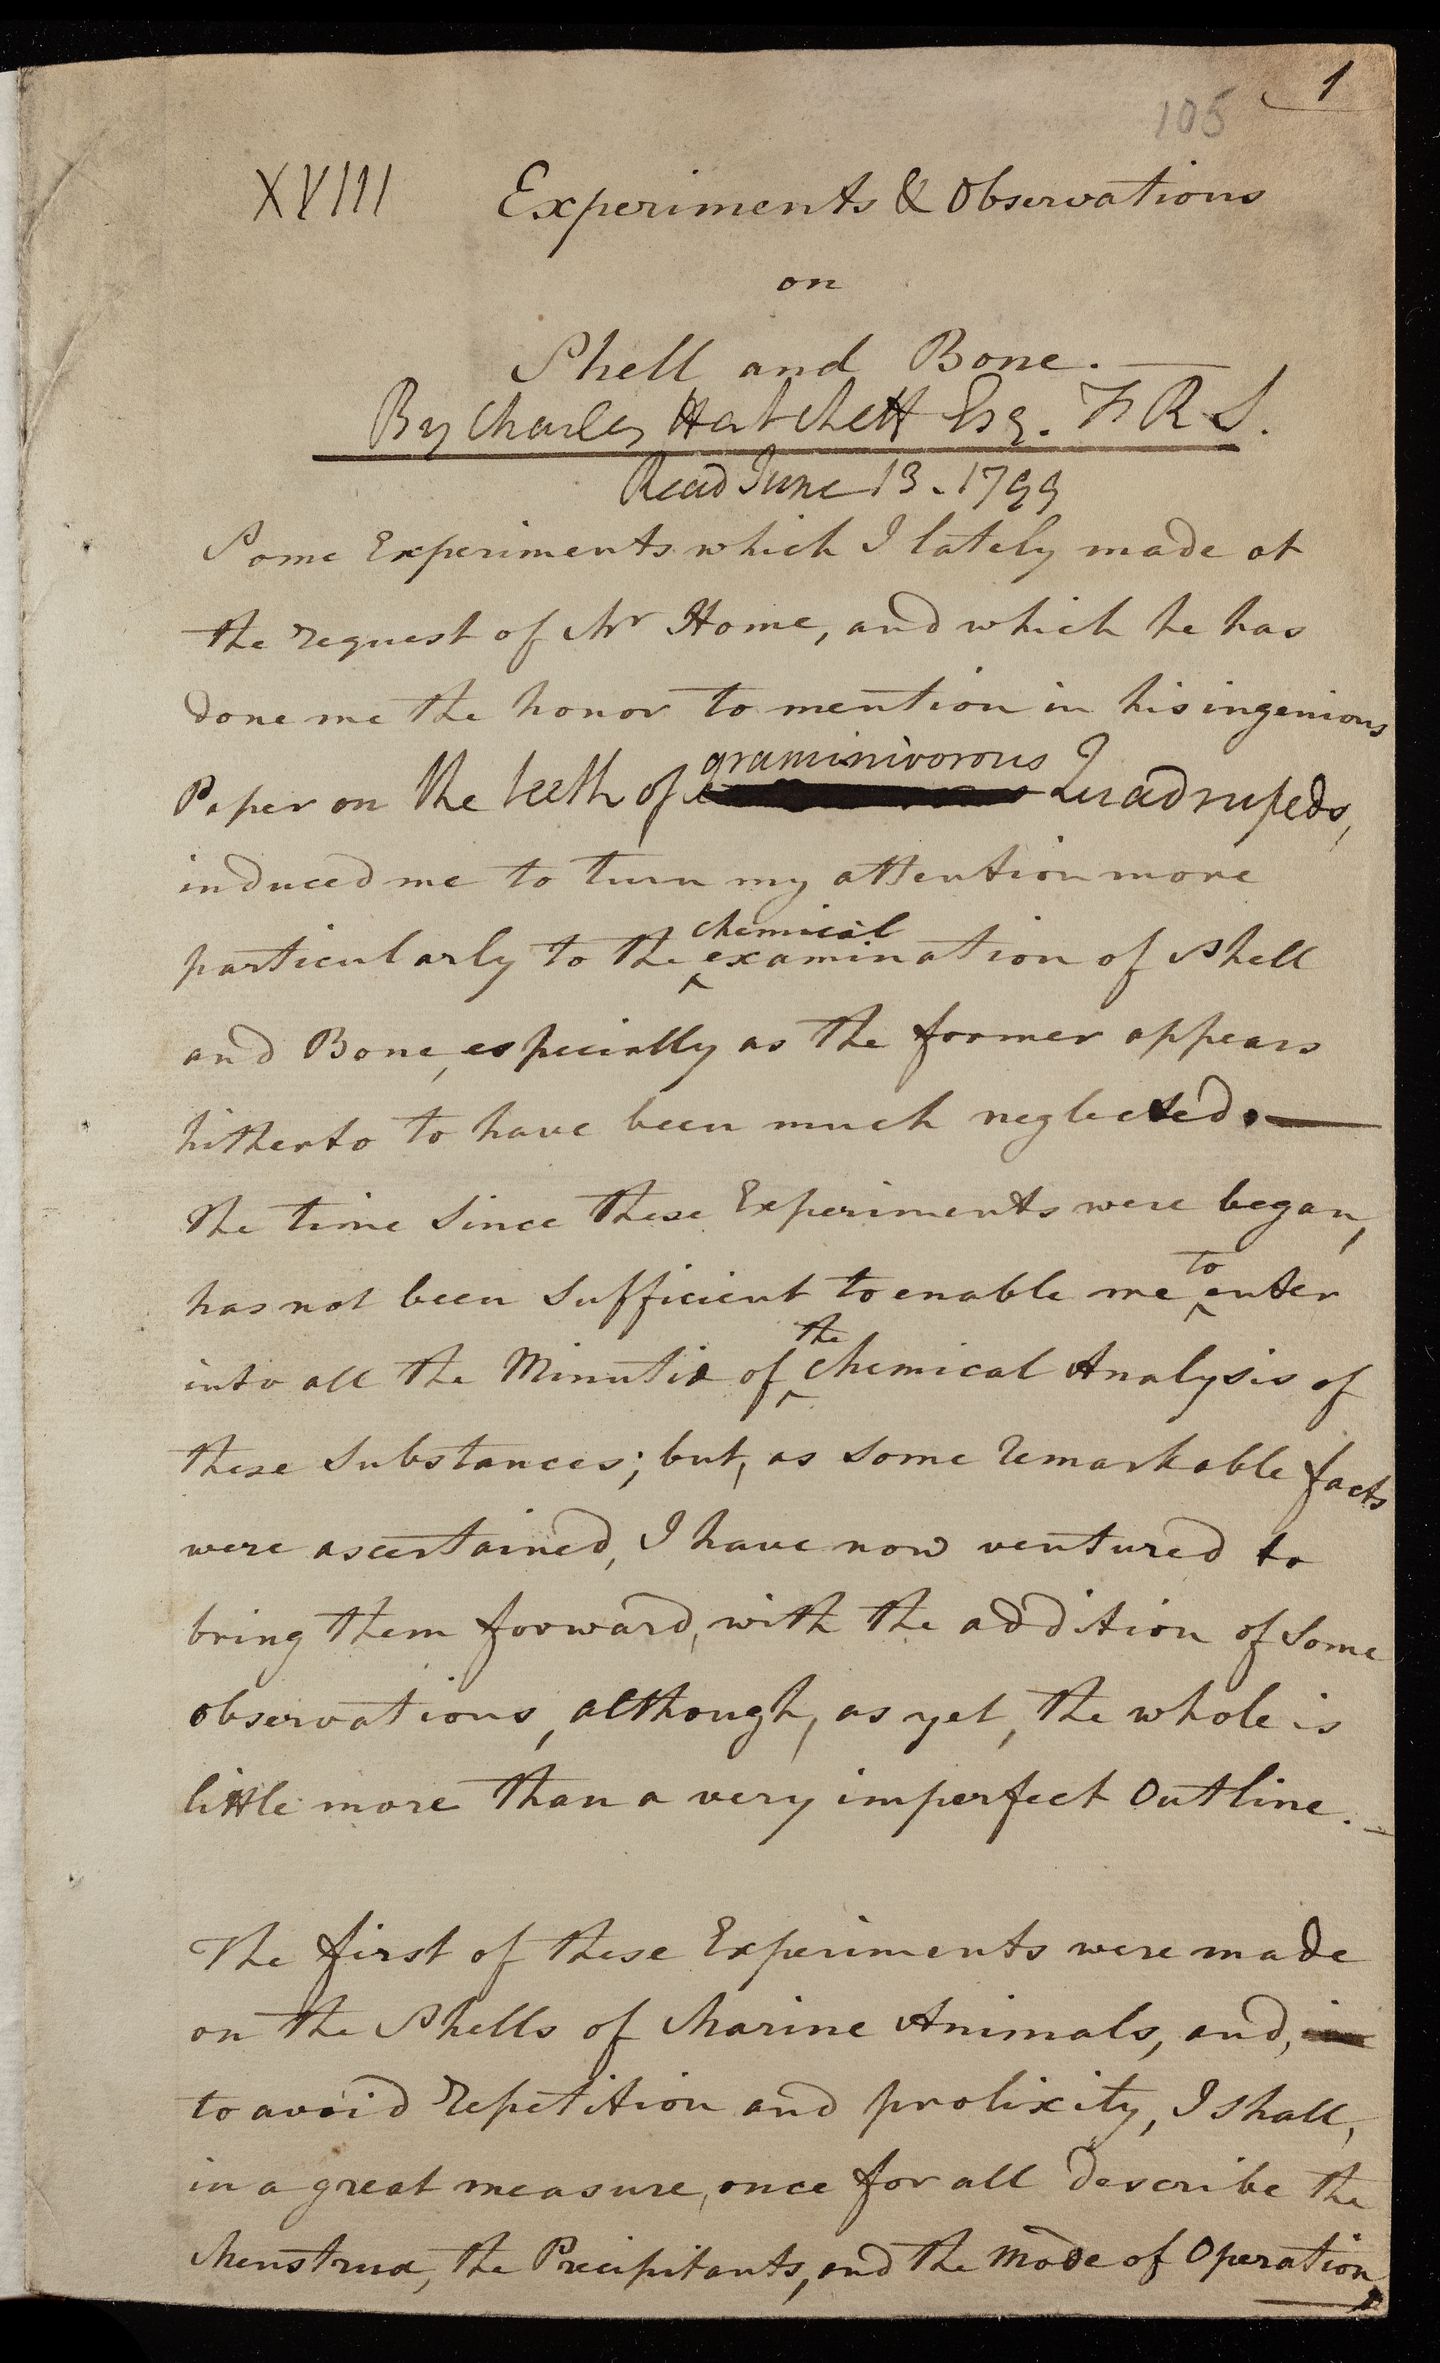 1
105
XVIII Experiments & Observations
on
Shell and Bone. —
By Charles Hatchett Esq. F R S.
Read June 13. 1799
Some Experiments which I lately made at
the request of Mr Home, and which he has
done me the honor to mention in his ingenious
graminivorous
Paper on the teeth of Quadrupeds,
induced me to turn my attention more
chemical
particularly to the ‸ examination of Shell
and Bone, especially as the former appears
hitherto to have been much neglected. —
The time since these Experiments were began,
to
has not been sufficient to enable me ‸ enter
the
into all the Minutiæ of ‸ chemical Analysis of
these Substances; but, as some remarkable facts
were ascertained, I have now ventured to
bring them forward, with the addition of some
observations, although, as yet, the whole is
little more than a very imperfect Outline. —
The first of these Experiments were made
on the Shells of Marine Animals, and, in
to avoid repetition and prolixity, I shall,
in a great measure, once for all describe the
Menstrua, the Precipitants, and the mode of Operation,